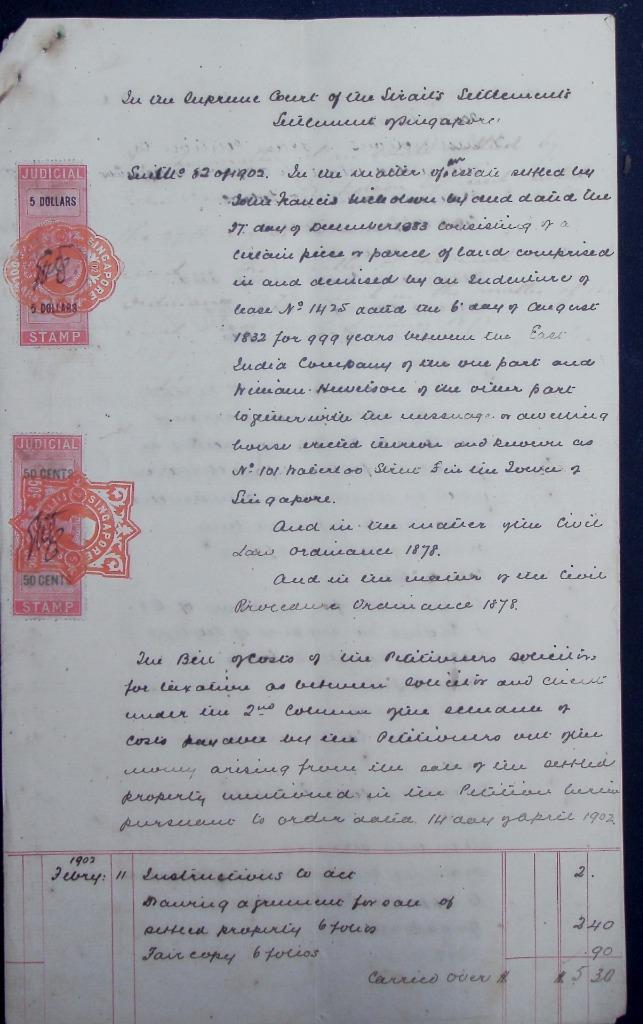 In the Supreme Court of the Straits Settlements
Settlement of Singapore.
Suit No 52 of 1902. In the matter of an estate settled by
John Francis Nicholson by and dated the
27. day of December 1883 consisting of a
certain piece or parcel of land comprised
in and demised by an Indenture of
lease No 1425 dated the 6 day of August
1832 for 999 years between the East
India Company of the one part and
William of the other part
together with the messuage or dwelling
house erected thereon and known as
No 101 Waterloo Street in the Town of
Singapore.
And in the matter of the Civil
Law Ordinance 1878.
And in the matter of the Civil
Procedure Ordinance 1878.
The Bill of Costs of the Petitioners Solicitors
for taxation as between Solicitor and client
under the 2nd Column of the schedule of
Costs payable by the Petitioners out of the
money arising from the sale of the settled
property mentioned in the Petition herein
pursuant to order dated 14 day of April 1902.
1902
Febry: 11 Instructions to act 2.
Drawing agreement for sale of
settled property 6 folios 2 40
Fair copy 6 folios .90
Carried over $ $ 5 30
JUDICIAL
5 DOLLARS
SINGAPORE
5 DOLLARS
STAMP
JUDICIAL
50 CENTS
SINGAPORE
50 CENTS
STAMP